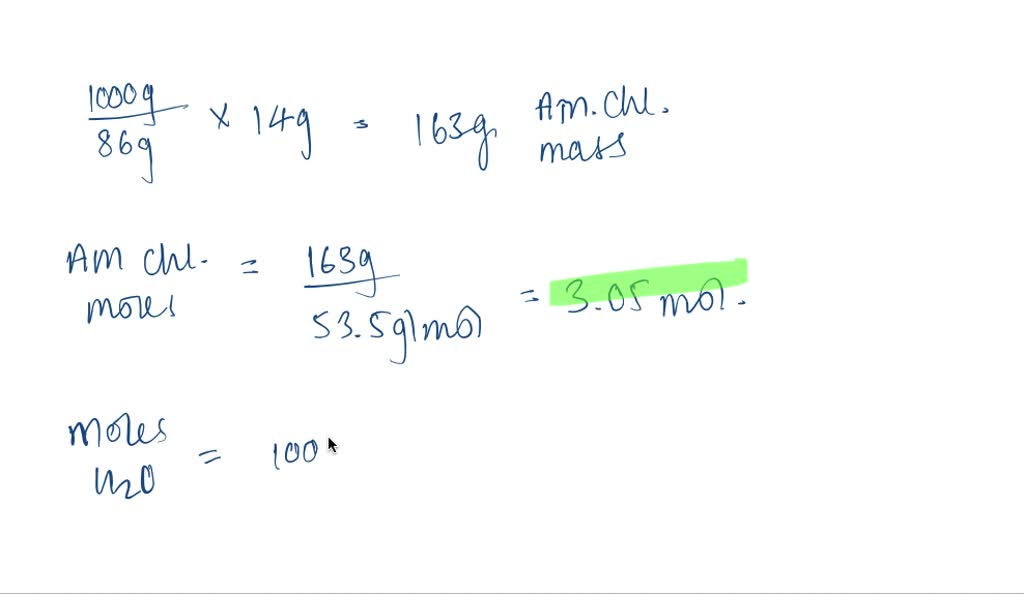 1000g
86g
× 14g = 163g Am. Chl.
mass
Am Chl.
moles
= 163g
53.5g/mol
= 3.05 mol.
moles
H2O
= 100